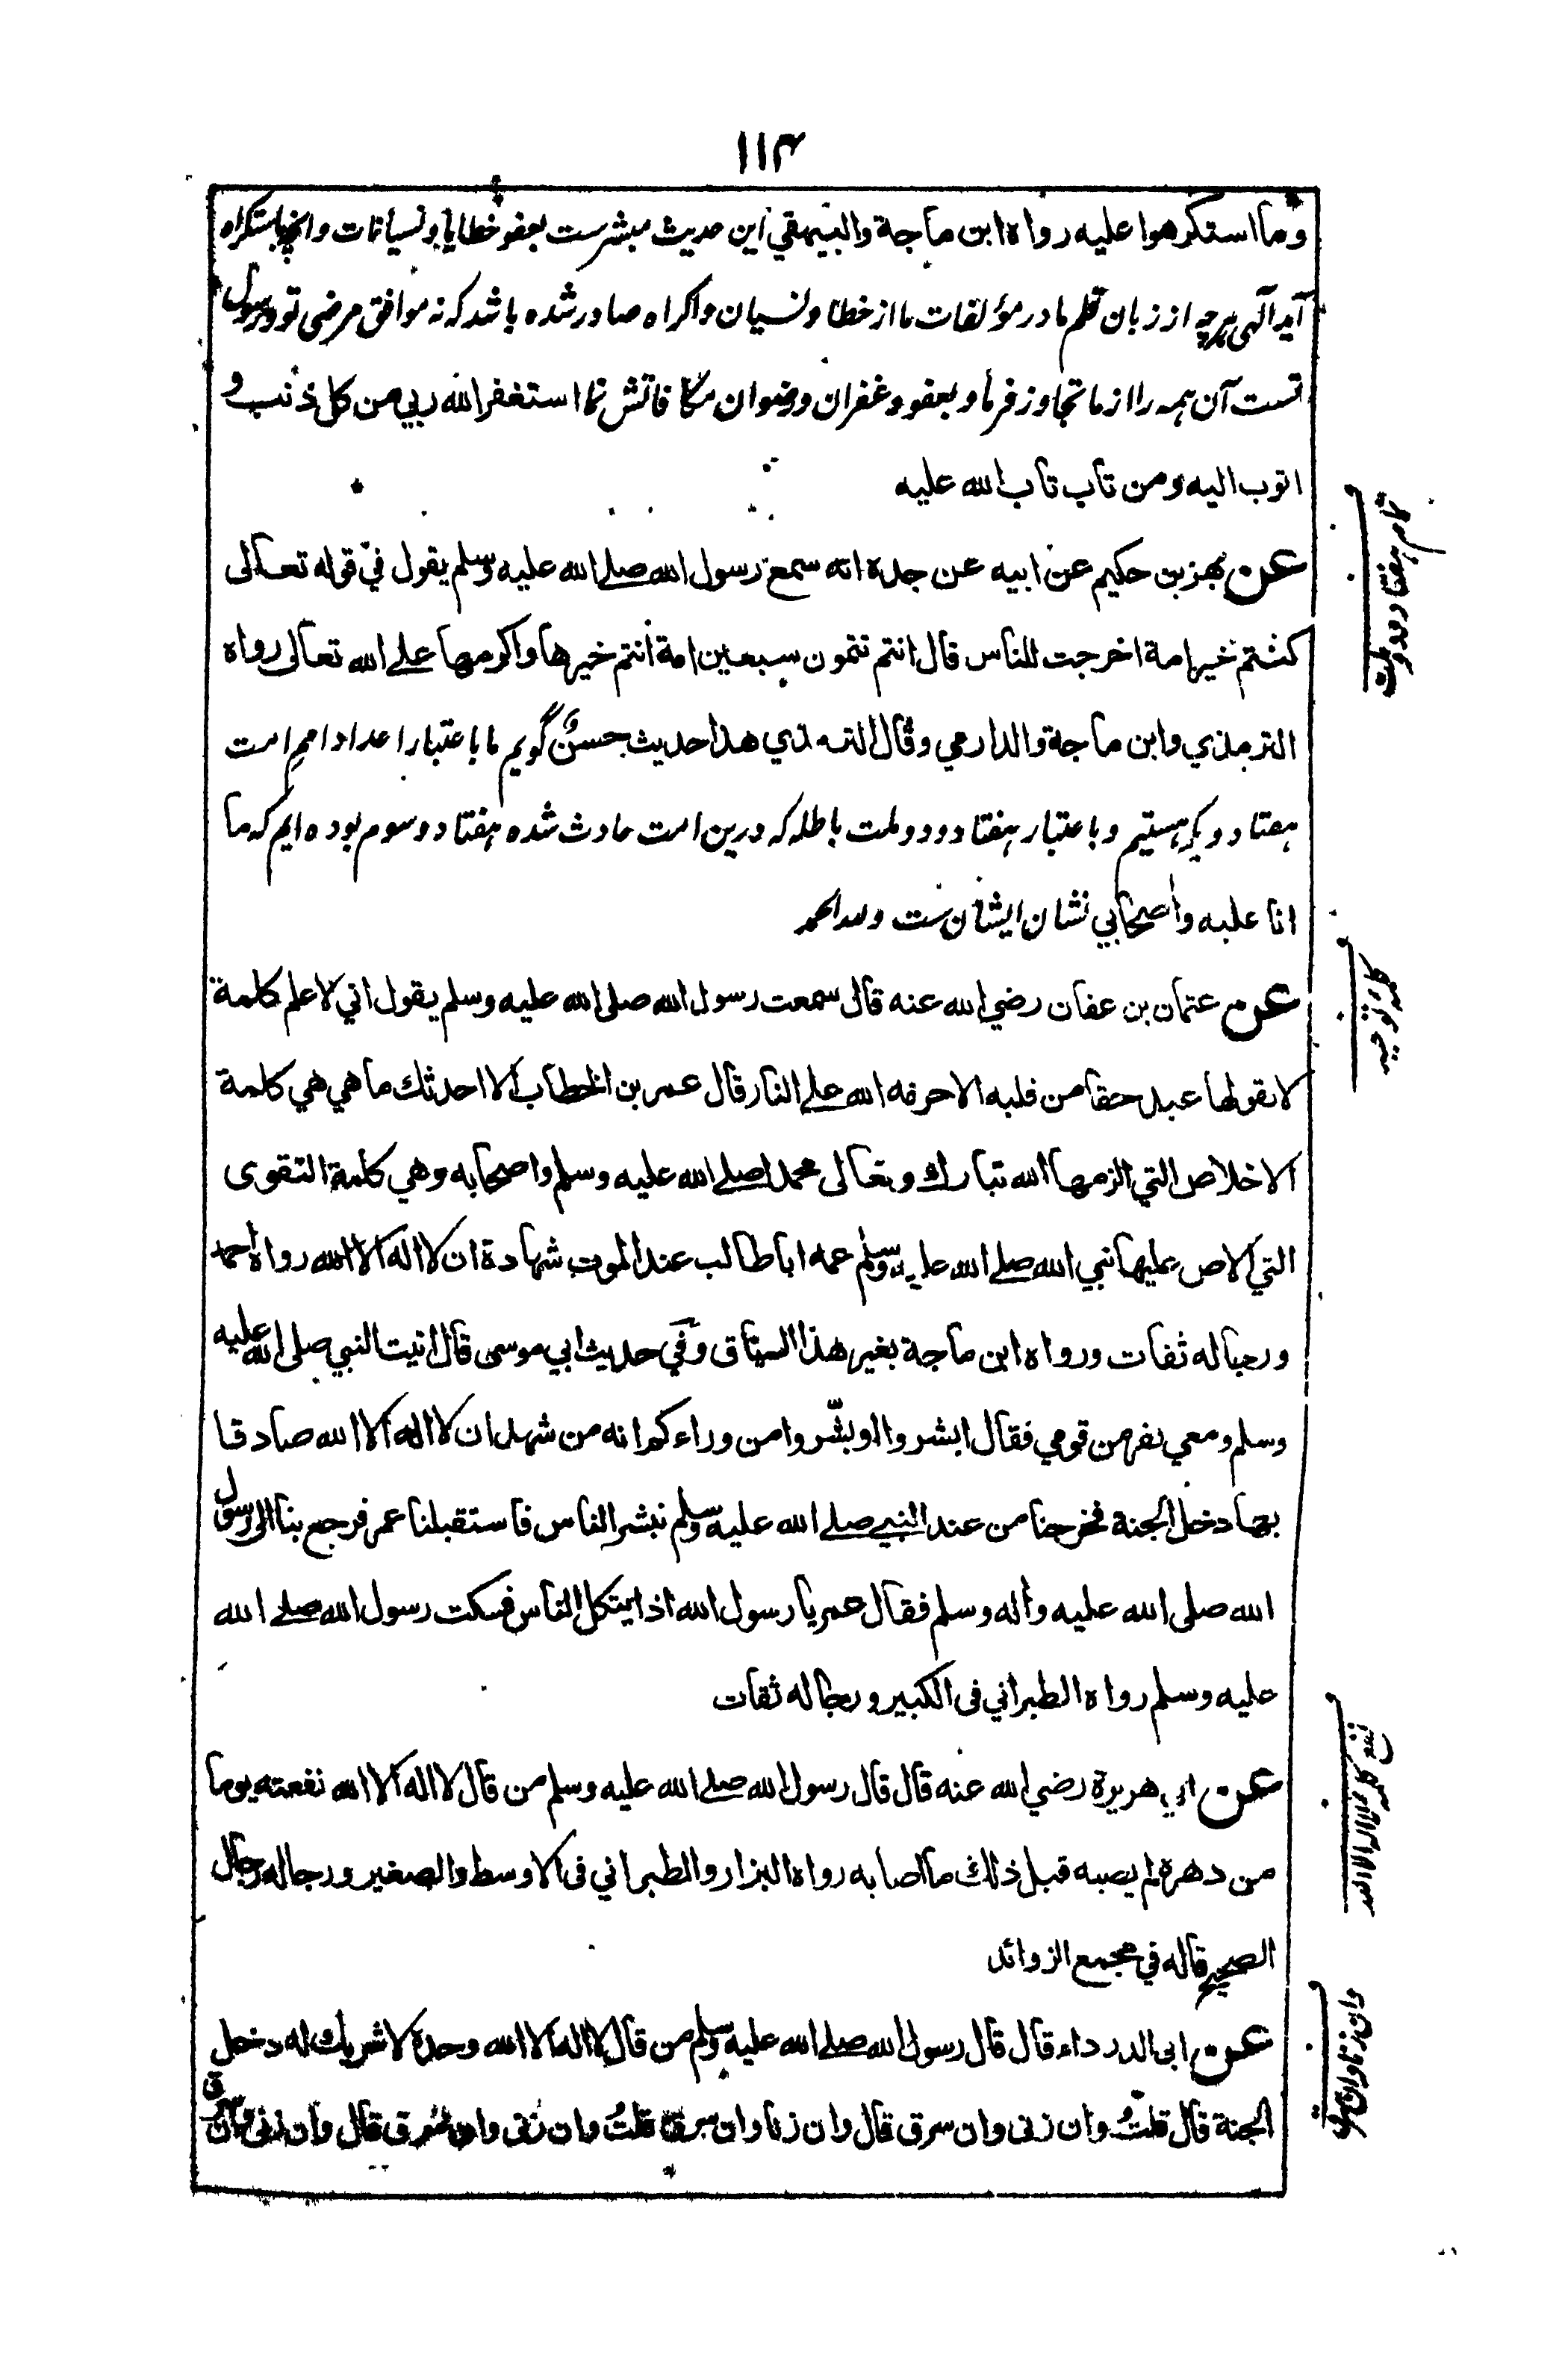 ۱۱۴
وما استكرهوا عليه رواه ابن ماجة والبيهقي این حدیث مبشرست بعفو خطایا و نسیانات وانچه باستکراه
آید آلهی هرچه از زبان قلم ما در مؤلفات ما از خطا و نسیان و اکراه صادر شده باشد که نه موافق مرضی تو و رسول
تست آن همه را از ما تجاوز فرما و بعفو و غفران و رضوان مکافاتش نما استغفر الله ربي من كل ذنب و
اتوب اليه ومن تاب تاب الله عليه
عن بهز بن حكيم عن ابيه عن جده انه سمع رسول الله صلى الله عليه وسلم يقول في قوله تعالى
كنتم خير امة اخرجت للناس قال انتم تتمون سبعين امة انتم خيرها واكرمها على الله تعالى رواه
الترمذي وابن ماجة والدارمي وقال الترمذي هذا حديث حسن گویم ما باعتبار اعداد امم امت
هفتاد و یکم هستیم و باعتبار هفتاد و دو ملت باطله که درین امت حادث شده هفتاد و سوم بوده ایم که ما
انا عليه واصحابي نشان ایشان ست ولله الحمد
عن عثمان بن عفان رضي الله عنه قال سمعت رسول الله صلى الله عليه وسلم يقول اني لاعلم كلمة
لا يقولها عبد حقا من قلبه الا حرمه الله على النار قال عمر بن الخطاب الا احدثك ما هي هي كلمة
الاخلاص التي الزمها الله تبارك وتعالى محمدا صلى الله عليه وسلم واصحابه وهي كلمة التقوى
التي الاص عليها نبي الله صلى الله عليه وسلم عمه ابا طالب عند الموت شهادة ان لا اله الا الله رواه احمد
ورجاله ثقات ورواه ابن ماجة بغير هذا السياق وفي حديث ابي موسى قال اتيت النبي صلى الله عليه
وسلم ومعي نفر من قومي فقال ابشروا وبشّروا من وراءكم انه من شهد ان لا اله الا الله صادقا
بها دخل الجنة فخرجنا من عند النبي صلى الله عليه وسلم نبشر الناس فاستقبلنا عمر فرجع بنا الى رسول
الله صلى الله عليه وأله وسلم فقال عمر يا رسول الله اذا يتكل الناس فسكت رسول الله صلى الله
عليه وسلم رواه الطبراني فى الكبير ورجاله ثقات
عن ابي هريرة رضي الله عنه قال قال رسول الله صلى الله عليه وسلم من قال لا اله الا الله نفعته يوما
من دهره لم يصبه قبل ذلك ما اصابه رواه البزار والطبراني فى الاوسط والصغير ورجاله رجال
الصحيح قاله في مجمع الزوائد
عن ابى الدرداء قال قال رسول الله صلى الله عليه وسلم من قال لا اله الا الله وحده لا شريك له دخل
الجنة قال قلتُ وان زنى وان سرق قال وان زنا وان سرق قلتُ وان زنى وان سرق قال وان زنى وان سرق
کلمهٔ توحید
نفع کلمه لا اله الا الله
وان زنا وان سرق